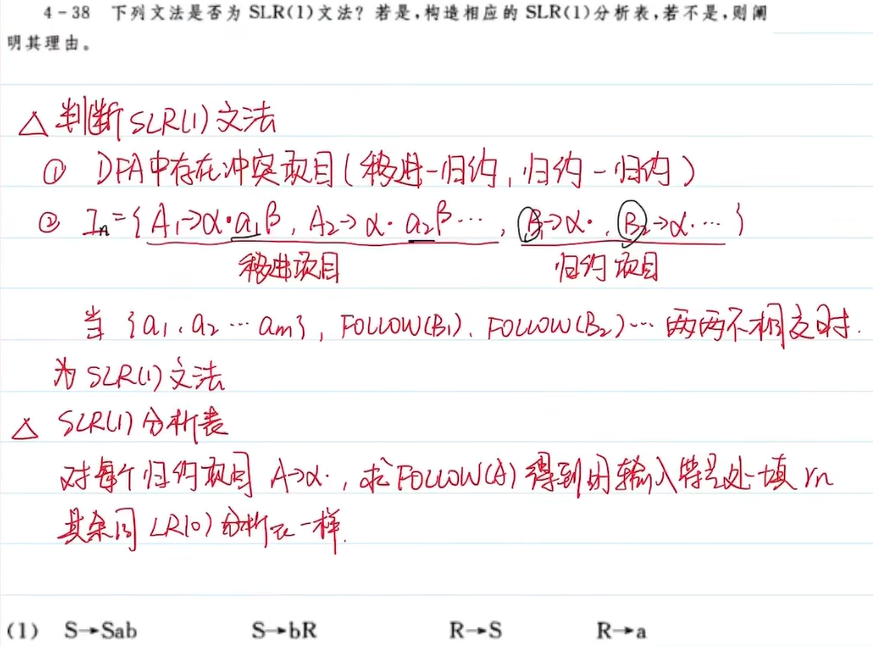 4-38 下列文法是否为 SLR(1)文法? 若是,构造相应的 SLR(1)分析表,若不是,则阐
明其理由。
△ 判断SLR(1)文法
① DFA中存在冲突项目(移进-归约, 归约-归约)
② In={A₁→α·a₁β, A₂→α·a₂β…, B₁→α·, B₂→α·…}
移进项目 归约项目
当 {a₁, a₂…am}, FOLLOW(B₁), FOLLOW(B₂)… 两两不相交时.
为SLR(1)文法
△ SLR(1)分析表
对每个归约项目 A→α·, 求FOLLOW(A) 得到的输入符号处填 rn
其余同 LR(0)分析表一样.
(1) S→Sab S→bR R→S R→a